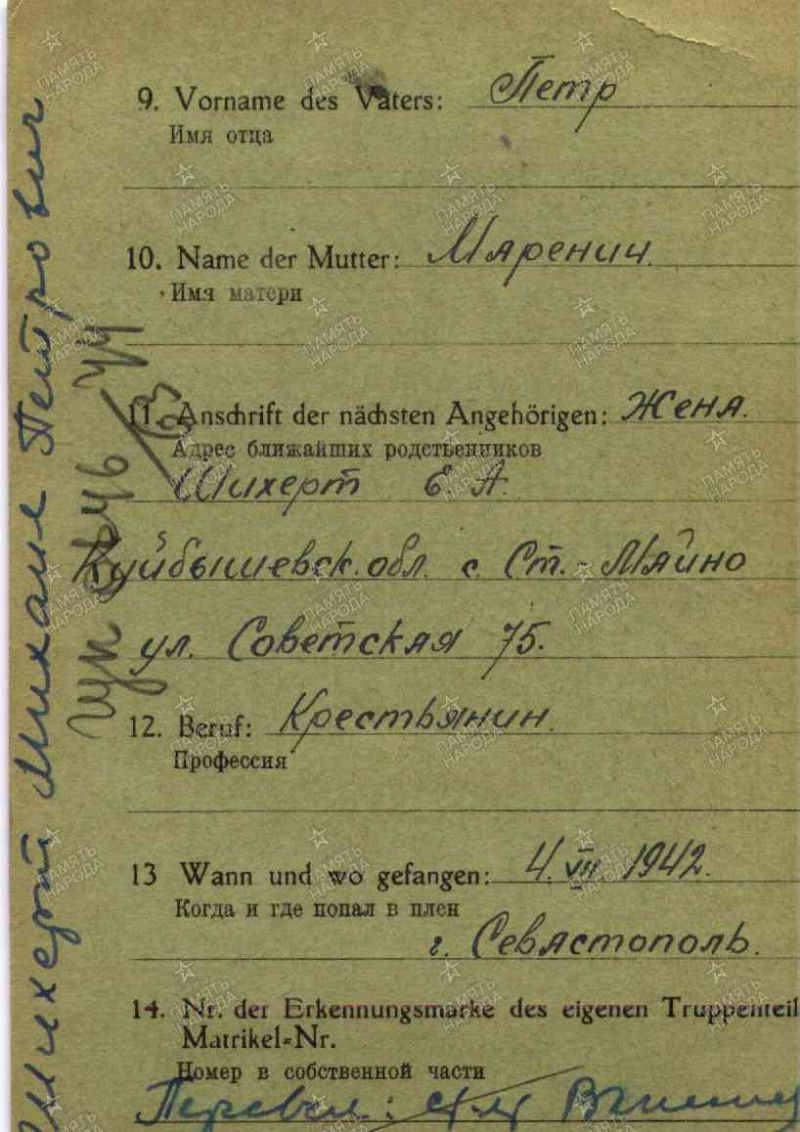 9. Vorname des Vaters: Петр
Имя отца
10. Name der Mutter: Маренич.
Имя матери
11. Anschrift der nächsten Angehörigen: Жена.
Адрес ближайших родственников
Шихерт Е. А.
Куйбышевск. обл. с. Ст.-Майно
ул. Советская 75.
12. Beruf: Крестьянин.
Профессия
13 Wann und wo gefangen: 4. VII 1942.
Когда и где попал в плен
г. Севастополь.
14. Nr. der Erkennungsmarke des eigenen Truppenteil
Matrikel-Nr.
Номер в собственной части
Перевел:
Шихерт Михаил Петрович
ПАМЯТЬ НАРОДА